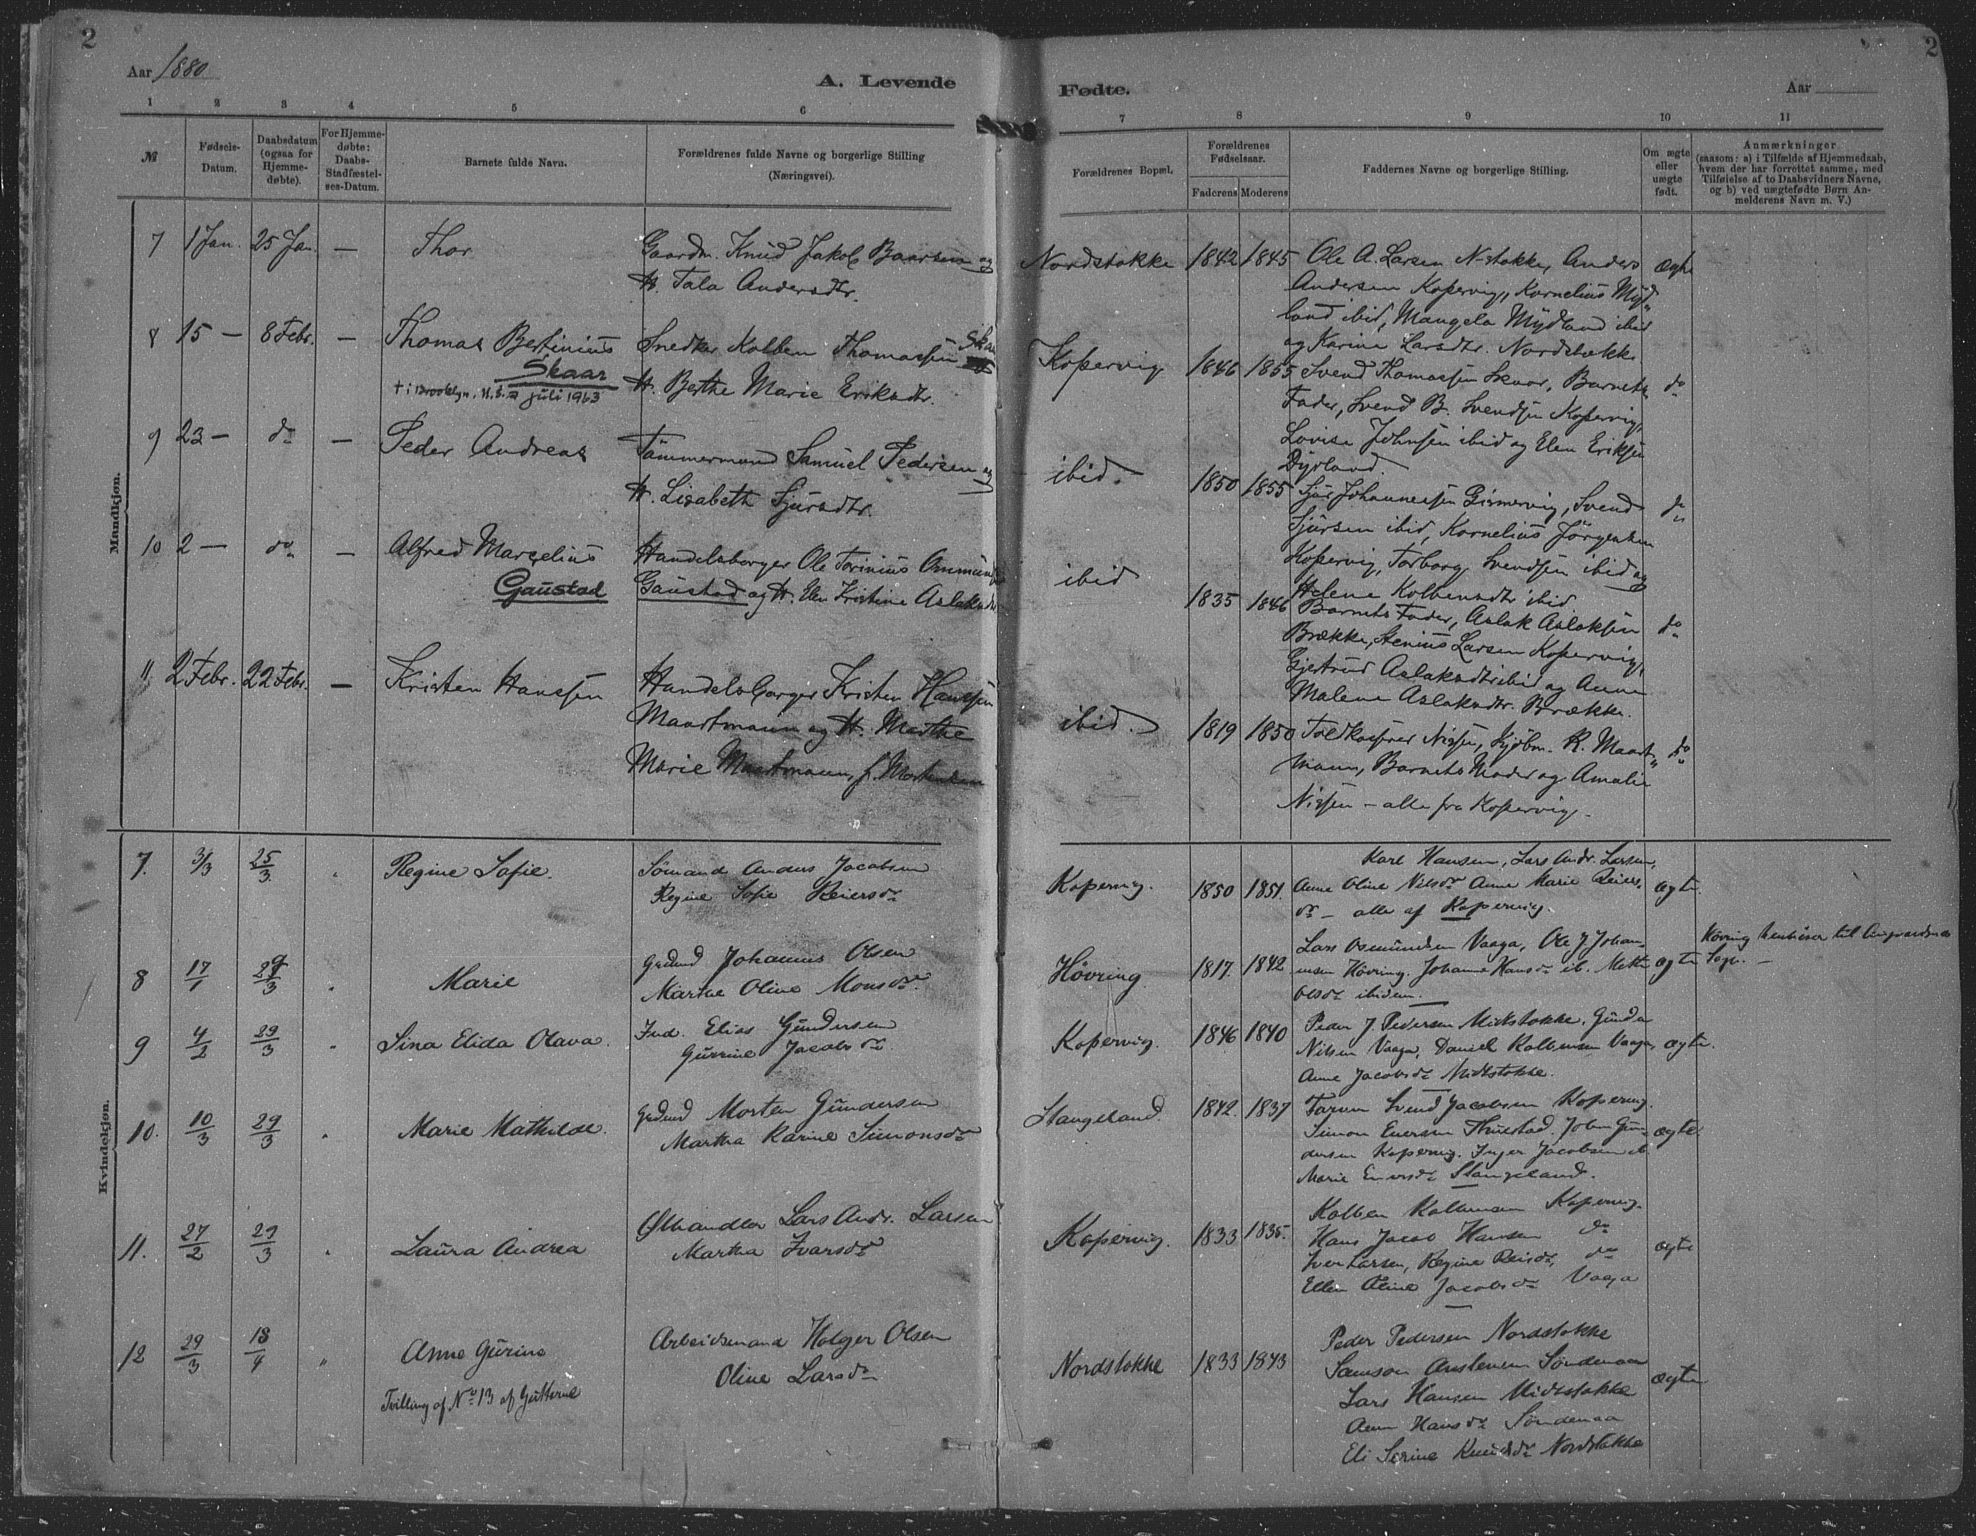 2
Aar 1880
A. Levende
Fødte.
Aar
2
1 2 3 4 5 6 7 8 9 10 11
№
Fødsels-Datum.
Daabsdatum (ogsaa for Hjemme-døbte).
For Hjemme-døbte: Daabs-Stadfæstel-ses-Datum.
Barnets fulde Navn.
Forældrenes fulde Navne og borgerlige Stilling
(Næringsvei).
Forældrenes Bopæl.
Forældrenes Fødselsaar.
Faderens Moderens
Faddernes Navne og borgerlige Stilling.
Om ægte eller uægte født.
Anmærkninger
(saasom: a) i Tilfælde af Hjemmedaab,
hvem der har forrettet samme, med
Tilføielse af to Daabsvidners Navne,
og b) ved uægtefødte Børn An-
melderens Navn m. V.)
Mandkjøn.
7 1 Jan. 25 Jan. — Thor
Gaardm. Knud Jakob Baarsen og
H. Tala Andersdtr.
Nordstokke 1842 1845
Ole A. Larsen N-stokke, Anders
Andersen Kopervig, Kornelius Myd-
land ibid, Mangela Mydland ibid
og Karine Larsdtr. Nordstokke
Ægte
8 15 — 8 Febr. — Thomas Bertinius
Skaar
† i Brooklyn, U.S.A juli 1963
Snedker Kolben Thomassen Skaar
H. Berthe Marie Eriksdtr.
Kopervig 1846 1855
Svend Thomassen Skaar, Barnets
Fader, Svend B. Svendsen Kopervig,
Lovise Johnsen ibid og Elen Eriksen
Dyrland.
do
9 23 — do — Peder Andreas
Tømmermand Samuel Pedersen og
H. Lisabeth Sjursdtr.
ibid. 1850 1855
Sjur Johannessen Grinnervig, Svend
Sjursen ibid, Kornelius Jørgensen
Kopervig, Torborg Svendsen ibid og
Helene Kolbensdtr ibid
do
10 2 — do — Alfred Marselius
Gaustad
Handelsborger Ole Torinius Ommunds
Gaustad og H. Elen Kristine Aslaksdtr
ibid 1835 1846
Barnets Fader, Aslak Aslaksen
Brække, Stenius Larsen Kopervig,
Gjertrud Aslaksdtr ibid og Anne
Malene Aslaksdtr. Brække.
do
11 2 Febr. 22 Febr. — Kristen Hanssen
Handelsborger Kristen Hanssen
Maartmann og H. Merthe
Marie Maartmann, f. Mortensen
ibid. 1819 1850
Toldkasserer Nissen, Kjøbm. R. Maart-
mann, Barnets Moder og Amalie
Nissen — alle fra Kopervig.
do
Kvindekjøn.
7. 3/3 25/3 Regine Sofie.
Sømand Anders Jacobsen
Regine Sofie Reiersdr
Kopervig. 1850 1851.
Karl Hansen, Lars Andr. Larsen,
Anne Oline Nilsdr Anne Marie Reiers-
dr — alle af Kopervig.
ægte.
8 17/1 29/3 Marie
Grdmd Johannes Olsen
Marthe Oline Monsdr.
Høvring 1817. 1842
Lars Osmundsen Vaaga, Ole J Johan-
nesen Høvring. Johanne Hansdr ib. Mette
Olsdr ibidem.
ægte
Høvring henhører til Augvaldsnes
Sogn. —
9 4/2 29/3 Sina Elida Olava.
Ind. Elias Gundersen
Gurine Jacobsdr
Kopervig. 1846 1840
Peder J. Pedersen Midtstokke, Gunder
Nilsen Vaaga, Daniel Kolbensen Vaaga,
Anne Jacobsdr Midtstokke.
ægte.
10. 10/3 29/3 Marie Mathilde.
Grdmd Morten Gundersen
Martha Karine Simonsdr
Stangeland 1842. 1837
Svend Jacobsen Kopervig.
Simon Enersen Thuestad. John Gun-
dersen Kopervig. Inger Jacobsen ib.
Marie Enersdr Stangeland.
ægte
11. 27/2 29/3 Laura Andrea
Ølhandler Lars Andr. Larsen
Martha Ivarsdr
Kopervig. 1833 1835.
Kolben Kolbensen Kopervig.
Hans Jacob Hansen do
Iver Larsen, Regine Reisdr, do
Ellen Oline Jacobsdr Vaaga
ægte
12 29/3 18/4 Anne Gurine
Tvilling af No 13 af Gutterne
Arbeidsmand Holger Olsen
Oline Larsdr
Nordstokke 1833 1843
Peder Pedersen Nordstokke
Samson Søndenaa
Lars Hansen Midtstokke
Ann Hansdr Søndenaa
Eli Serine Knudsdr Nordstokke
ægte